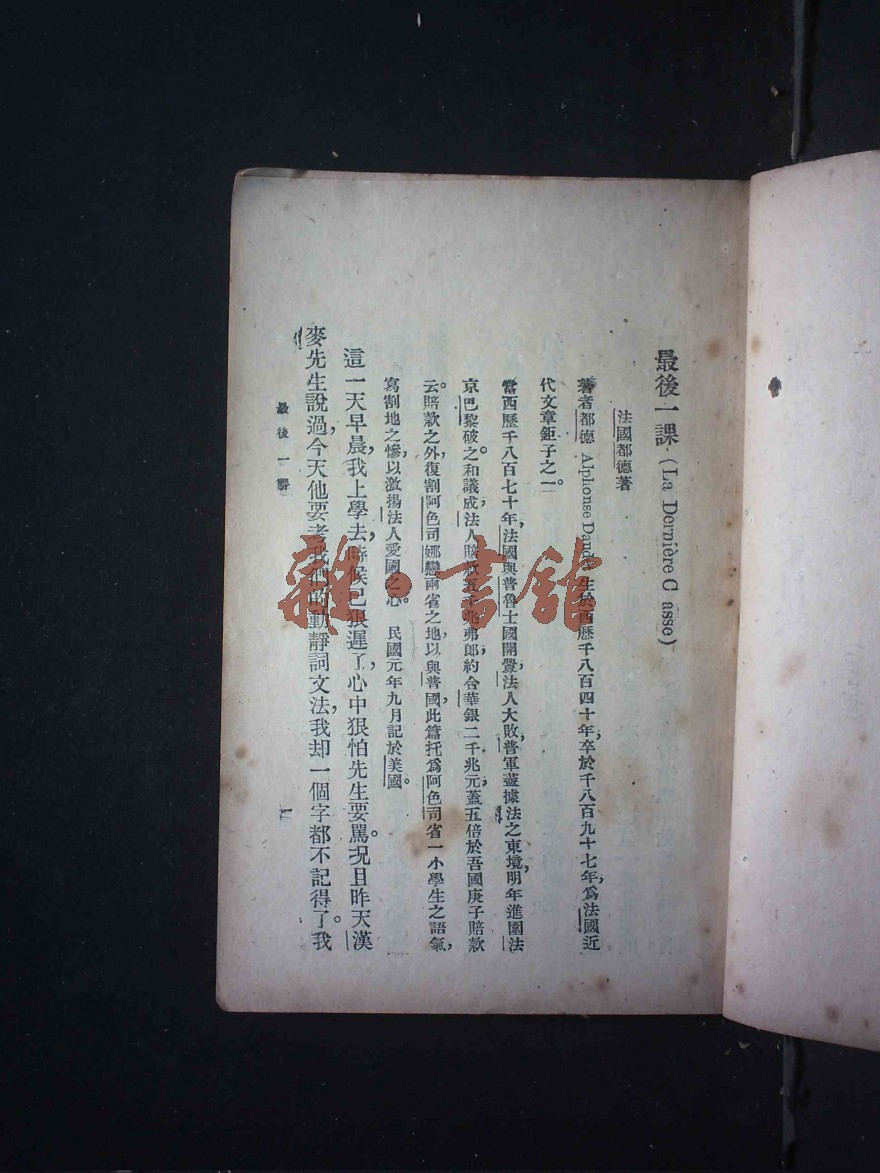 最後一課 (La Dernière C asse)
法國都德著
著者都德 Alphonse Daudet 生於西歷千八百四十年，卒於千八百九十七年，爲法國近
代文章鉅子之一。
當西歷千八百七十年，法國與普魯士國開釁，法人大敗，普軍盡據法之東境，明年進圍法
京巴黎破之。和議成，法人賠款五千兆弗郎，約合華銀二千兆元，蓋五倍於吾國庚子賠款
云。賠款之外，復割阿色司娜戀兩省之地以與普國，此篇托爲阿色司省一小學生之語氣，
寫割地之慘，以激揚法人愛國之心。 民國元年九月記於美國。
這一天早晨，我上學去，時候已狠遲了，心中狠怕先生要罵。況且昨天漢
麥先生說過，今天他要考我們的動靜詞文法，我却一個字都不記得了。我
最後一課
一
雜·書館